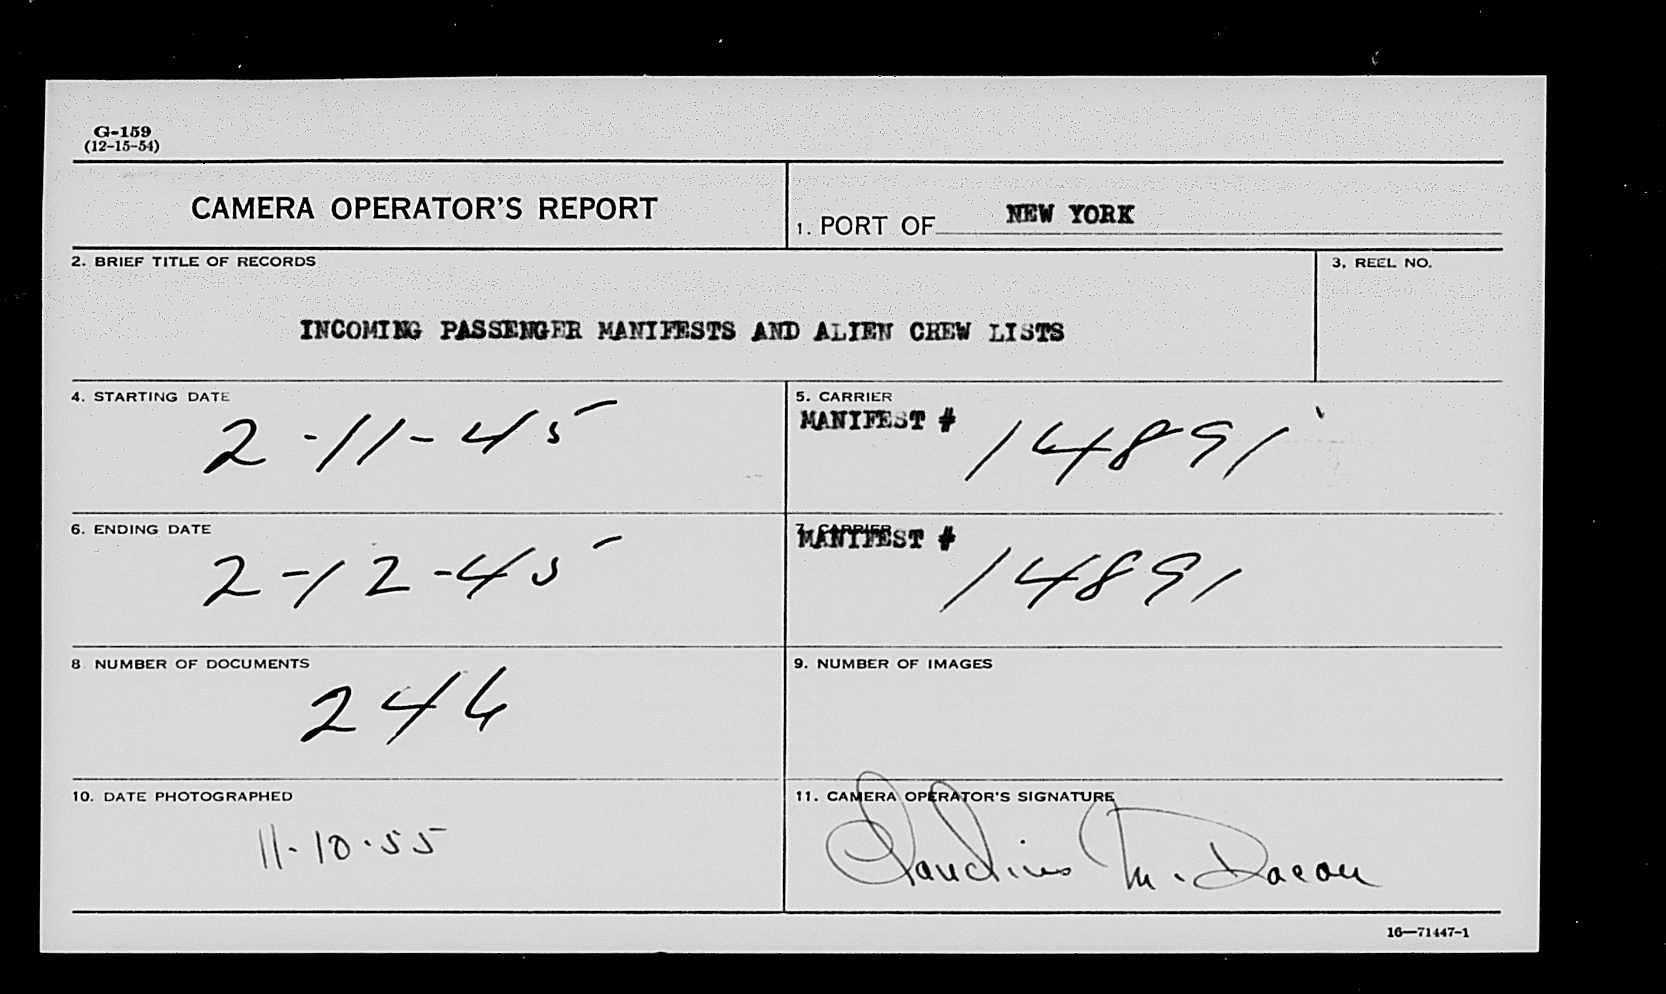 G-159
(12-15-54)
CAMERA OPERATOR'S REPORT
1. PORT OF NEW YORK
2. BRIEF TITLE OF RECORDS
3. REEL NO.
INCOMING PASSENGER MANIFESTS AND ALIEN CREW LISTS
4. STARTING DATE
2-11-45
5. CARRIER
MANIFEST # 14891
6. ENDING DATE
2-12-45
7. CARRIER
MANIFEST # 14891
8 NUMBER OF DOCUMENTS
246
9. NUMBER OF IMAGES
10. DATE PHOTOGRAPHED
11-10-55
11. CAMERA OPERATOR'S SIGNATURE
Claudius M.
16—71447-1